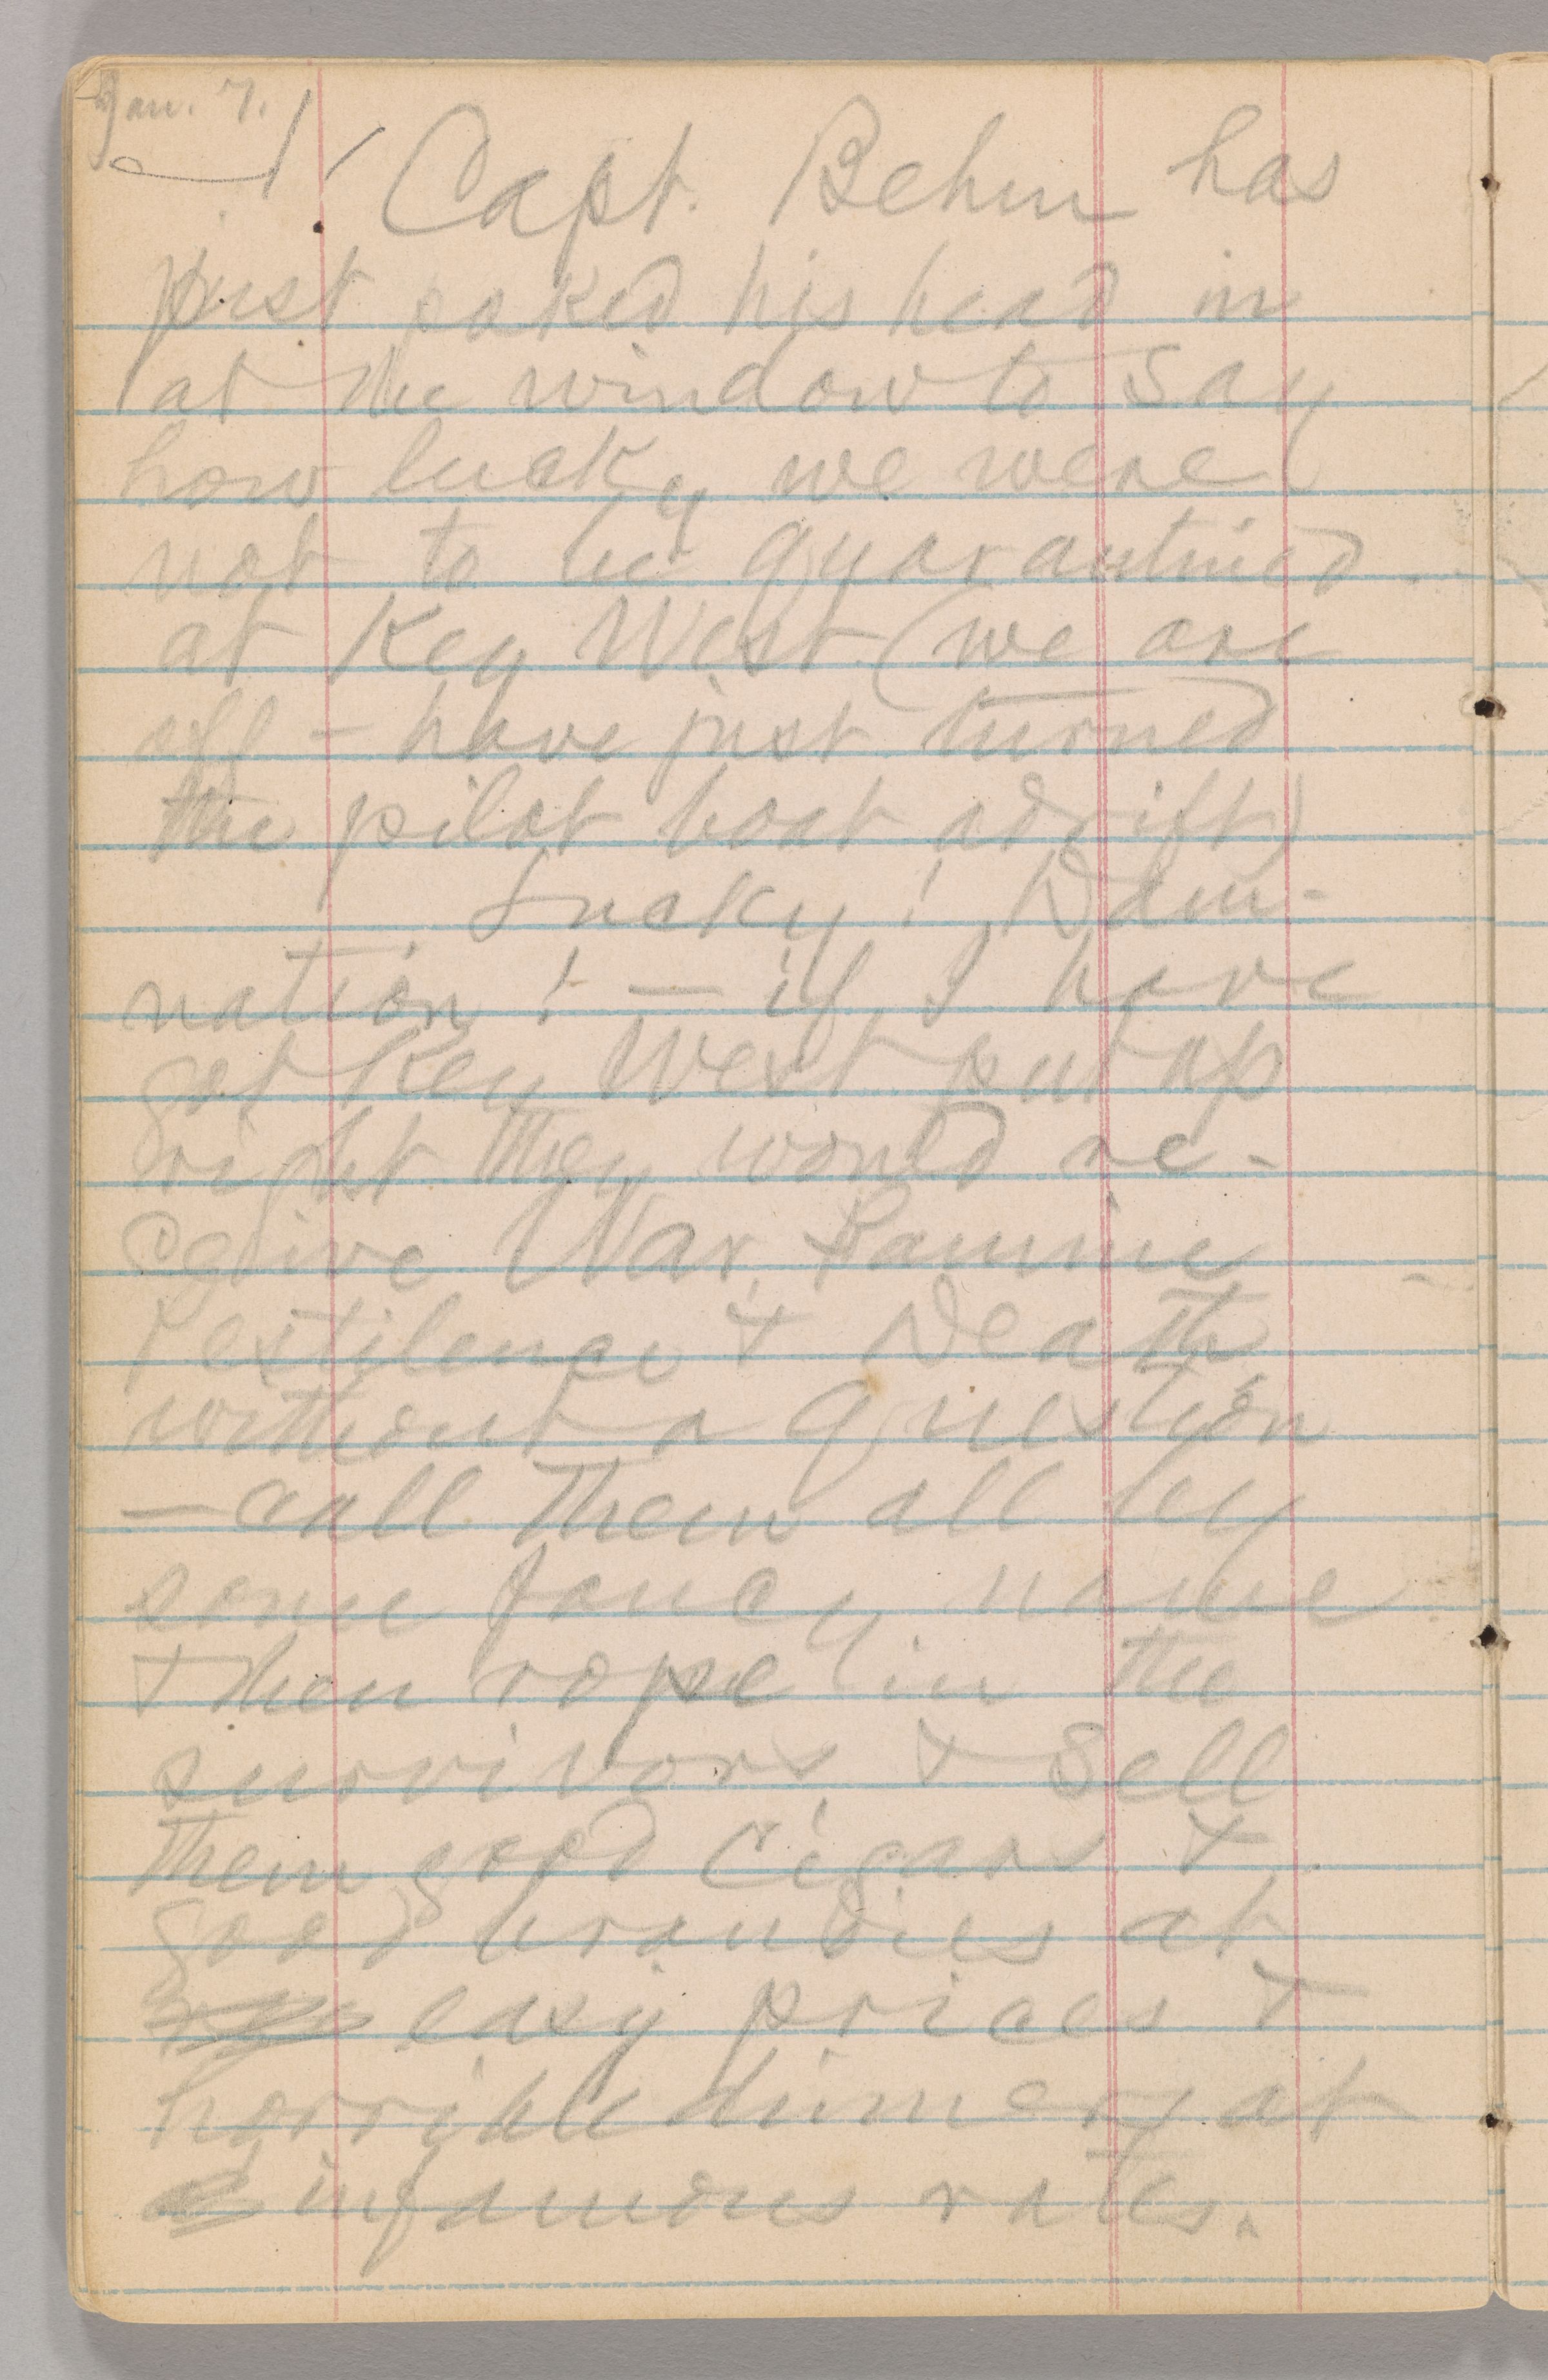 Jan. 7.
Capt. Behm has
just poked his head in
at the window to say
how lucky we were
not to be quarantined
at Key West (we are
off – have just turned
the pilot boat adrift)
Lucky! Dam-
nation! — if I have
got Key West put up
right they would re-
ceive War, Famine
Pestilence & Death
without a question
— call them all by
some fancy name
& then rope in the
survivors & sell
them good cigars &
good brandies at
easy prices &
horrible dinners at
infamous rates.